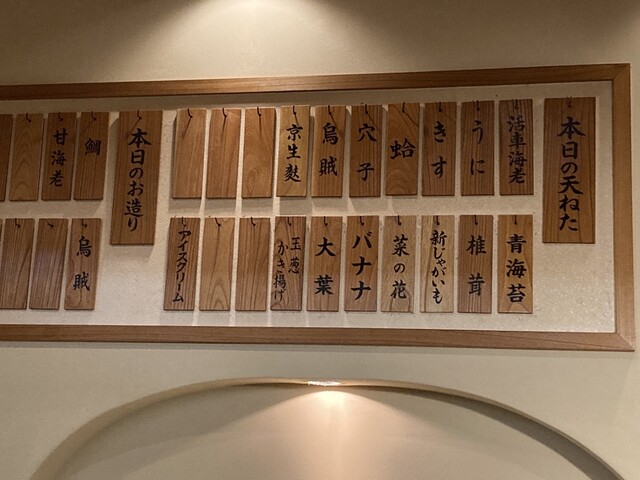 本日の天ねた
活車海老
うに
きす
蛤
穴子
烏賊
京生麩
青海苔
椎茸
新じゃがいも
菜の花
バナナ
大葉
玉葱かき揚げ
アイスクリーム
本日のお造り
鯛
甘海老
烏賊